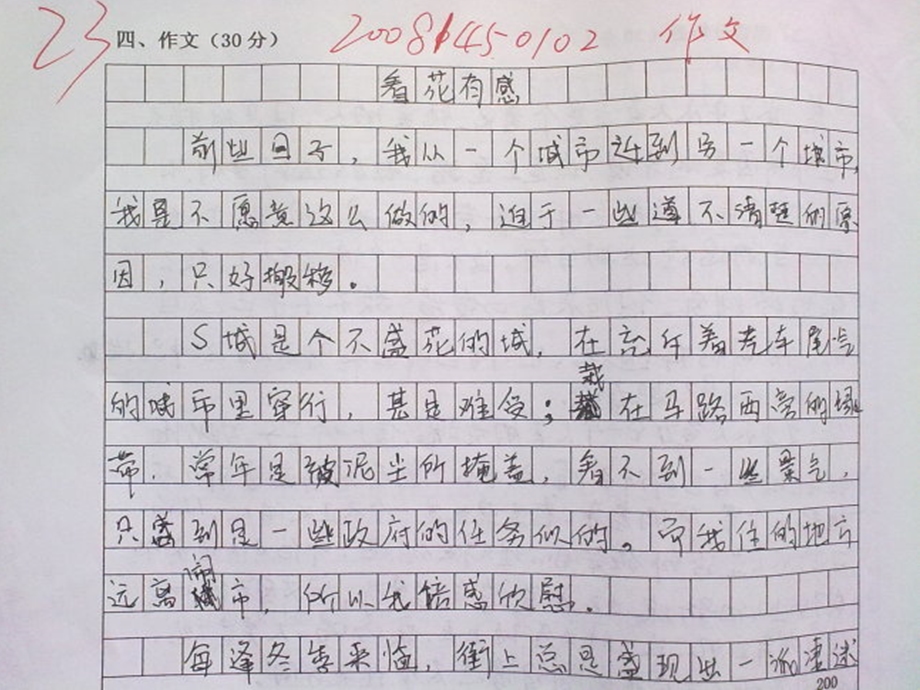 23 四、作文（30分） 2008145 0102 作文
看花有感
前些日子，我从一个城市迁到另一个城市，
我是不愿意这么做的，迫于一些道不清楚的原
因，只好搬移。
S城是个不盛花的城，在充斥着老车尾气
的城市里穿行，甚是难受；栽在马路两旁的绿
带，常年是被泥尘所掩盖，看不到一些景气，
只感到是一些政府的任务似的。而我住的地方
远离闹市，所以我倍感欣慰。
每逢冬季来临，街上总是盛现出一派凄迷
200